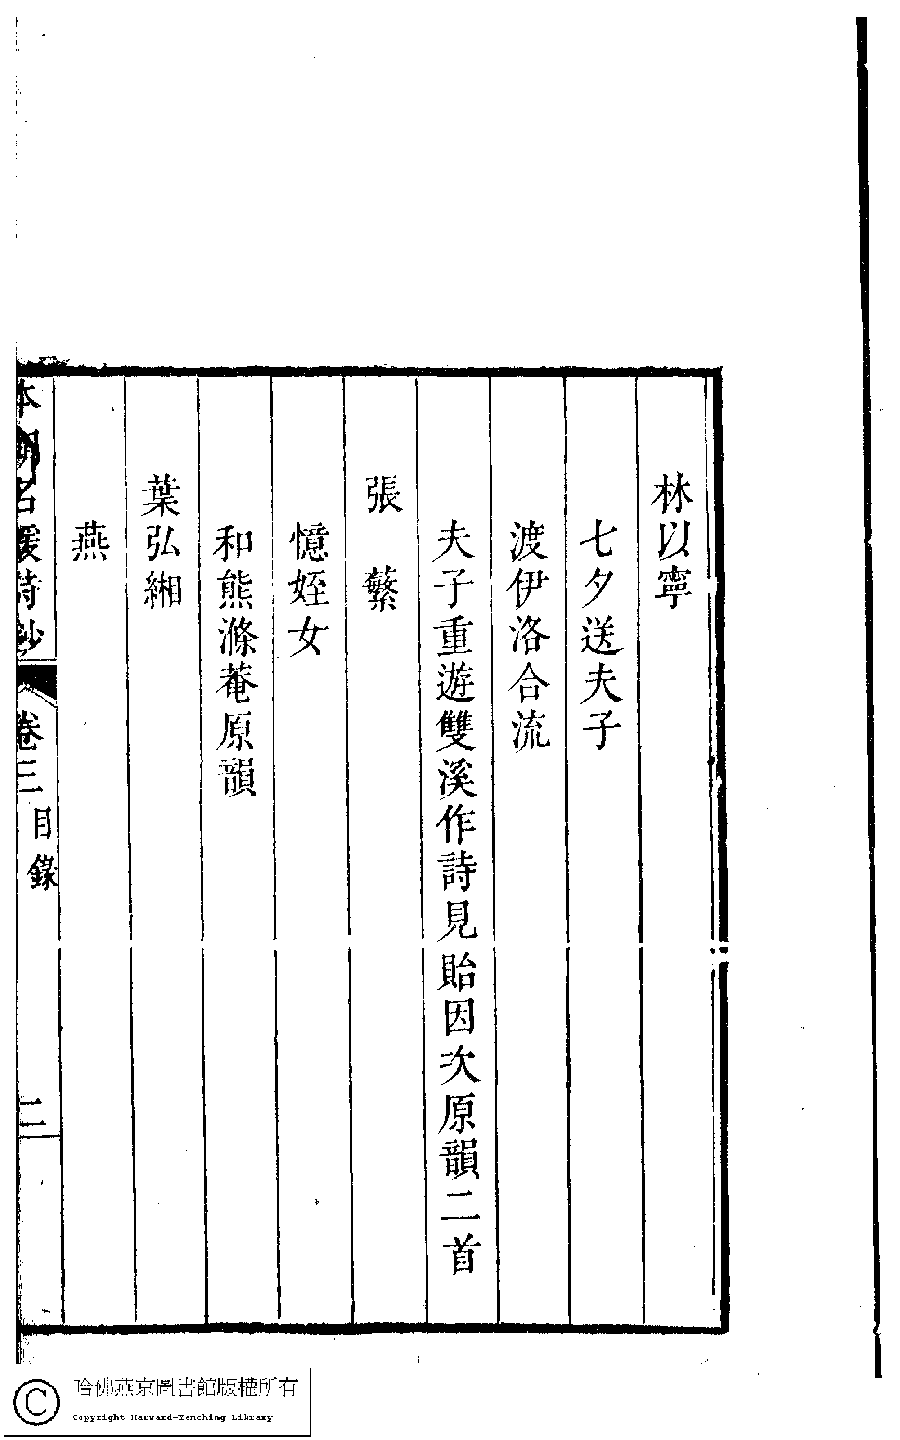 林以寧
七夕送夫子
渡伊洛合流
夫子重遊雙溪作詩見貽因次原韻二首
張蘩
憶姪女
和熊滌菴原韻
葉弘緗
燕
本朝名媛詩鈔 卷三 目錄 二
哈佛燕京圖書館版權所有
Copyright Harvard-Yenching Library